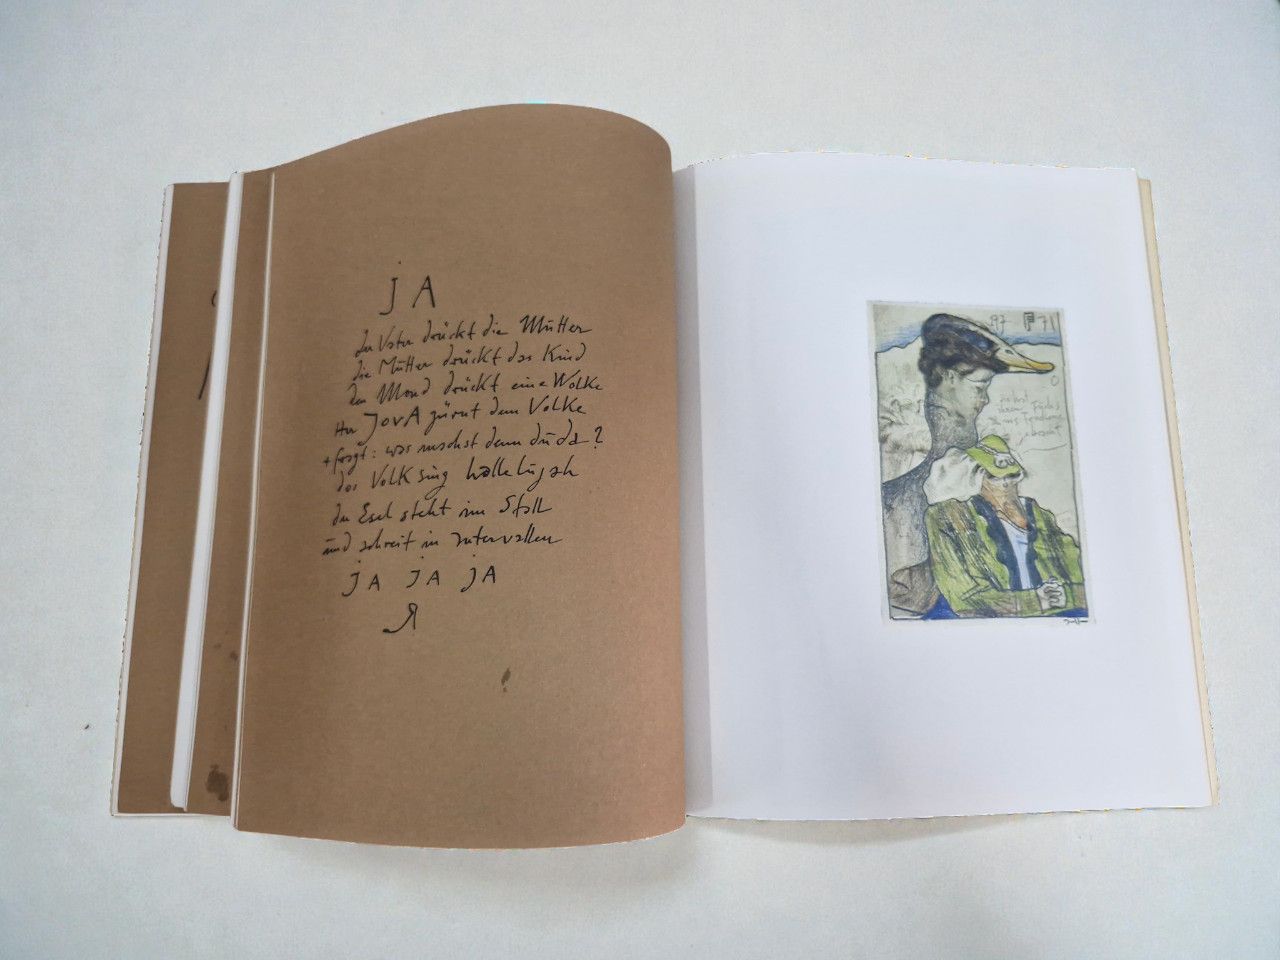 JA
der Vater drückt die Mutter
die Mutter drückt das Kind
der Mond drückt eine Wolke
Herr JovA zürnt dem Volke
+ frägt: was machst denn du da?
das Volk sing hallelujah
der Esel steht im Stall
und schreit in intervallen
JA JA JA
R
97 71